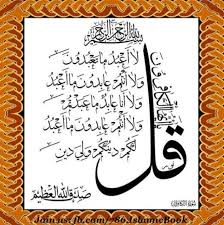 بسم الله الرحمن الرحيم
قل
يا أيها الكافرون
لا أعبد ما تعبدون
ولا أنتم عابدون ما أعبد
ولا أنا عابد ما عبدتم
ولا أنتم عابدون ما أعبد
لكم دينكم ولي دين
صدق الله العظيم
Join us fb.com/786.IslamicBook